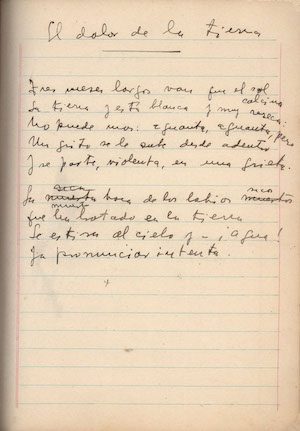 El dolor de la tierra
Tres meses largos van que el sol
calcina
La tierra y está blanca y muy reseca:
No puede más: aguanta, aguanta, pero
Un grito se le sube desde adentro
Y se parte, violenta, en una grieta.
La boca de los labios
muertos
que ha brotado en la tierra
Se estira al cielo y — ¡agua!
Ya pronunciar intenta.